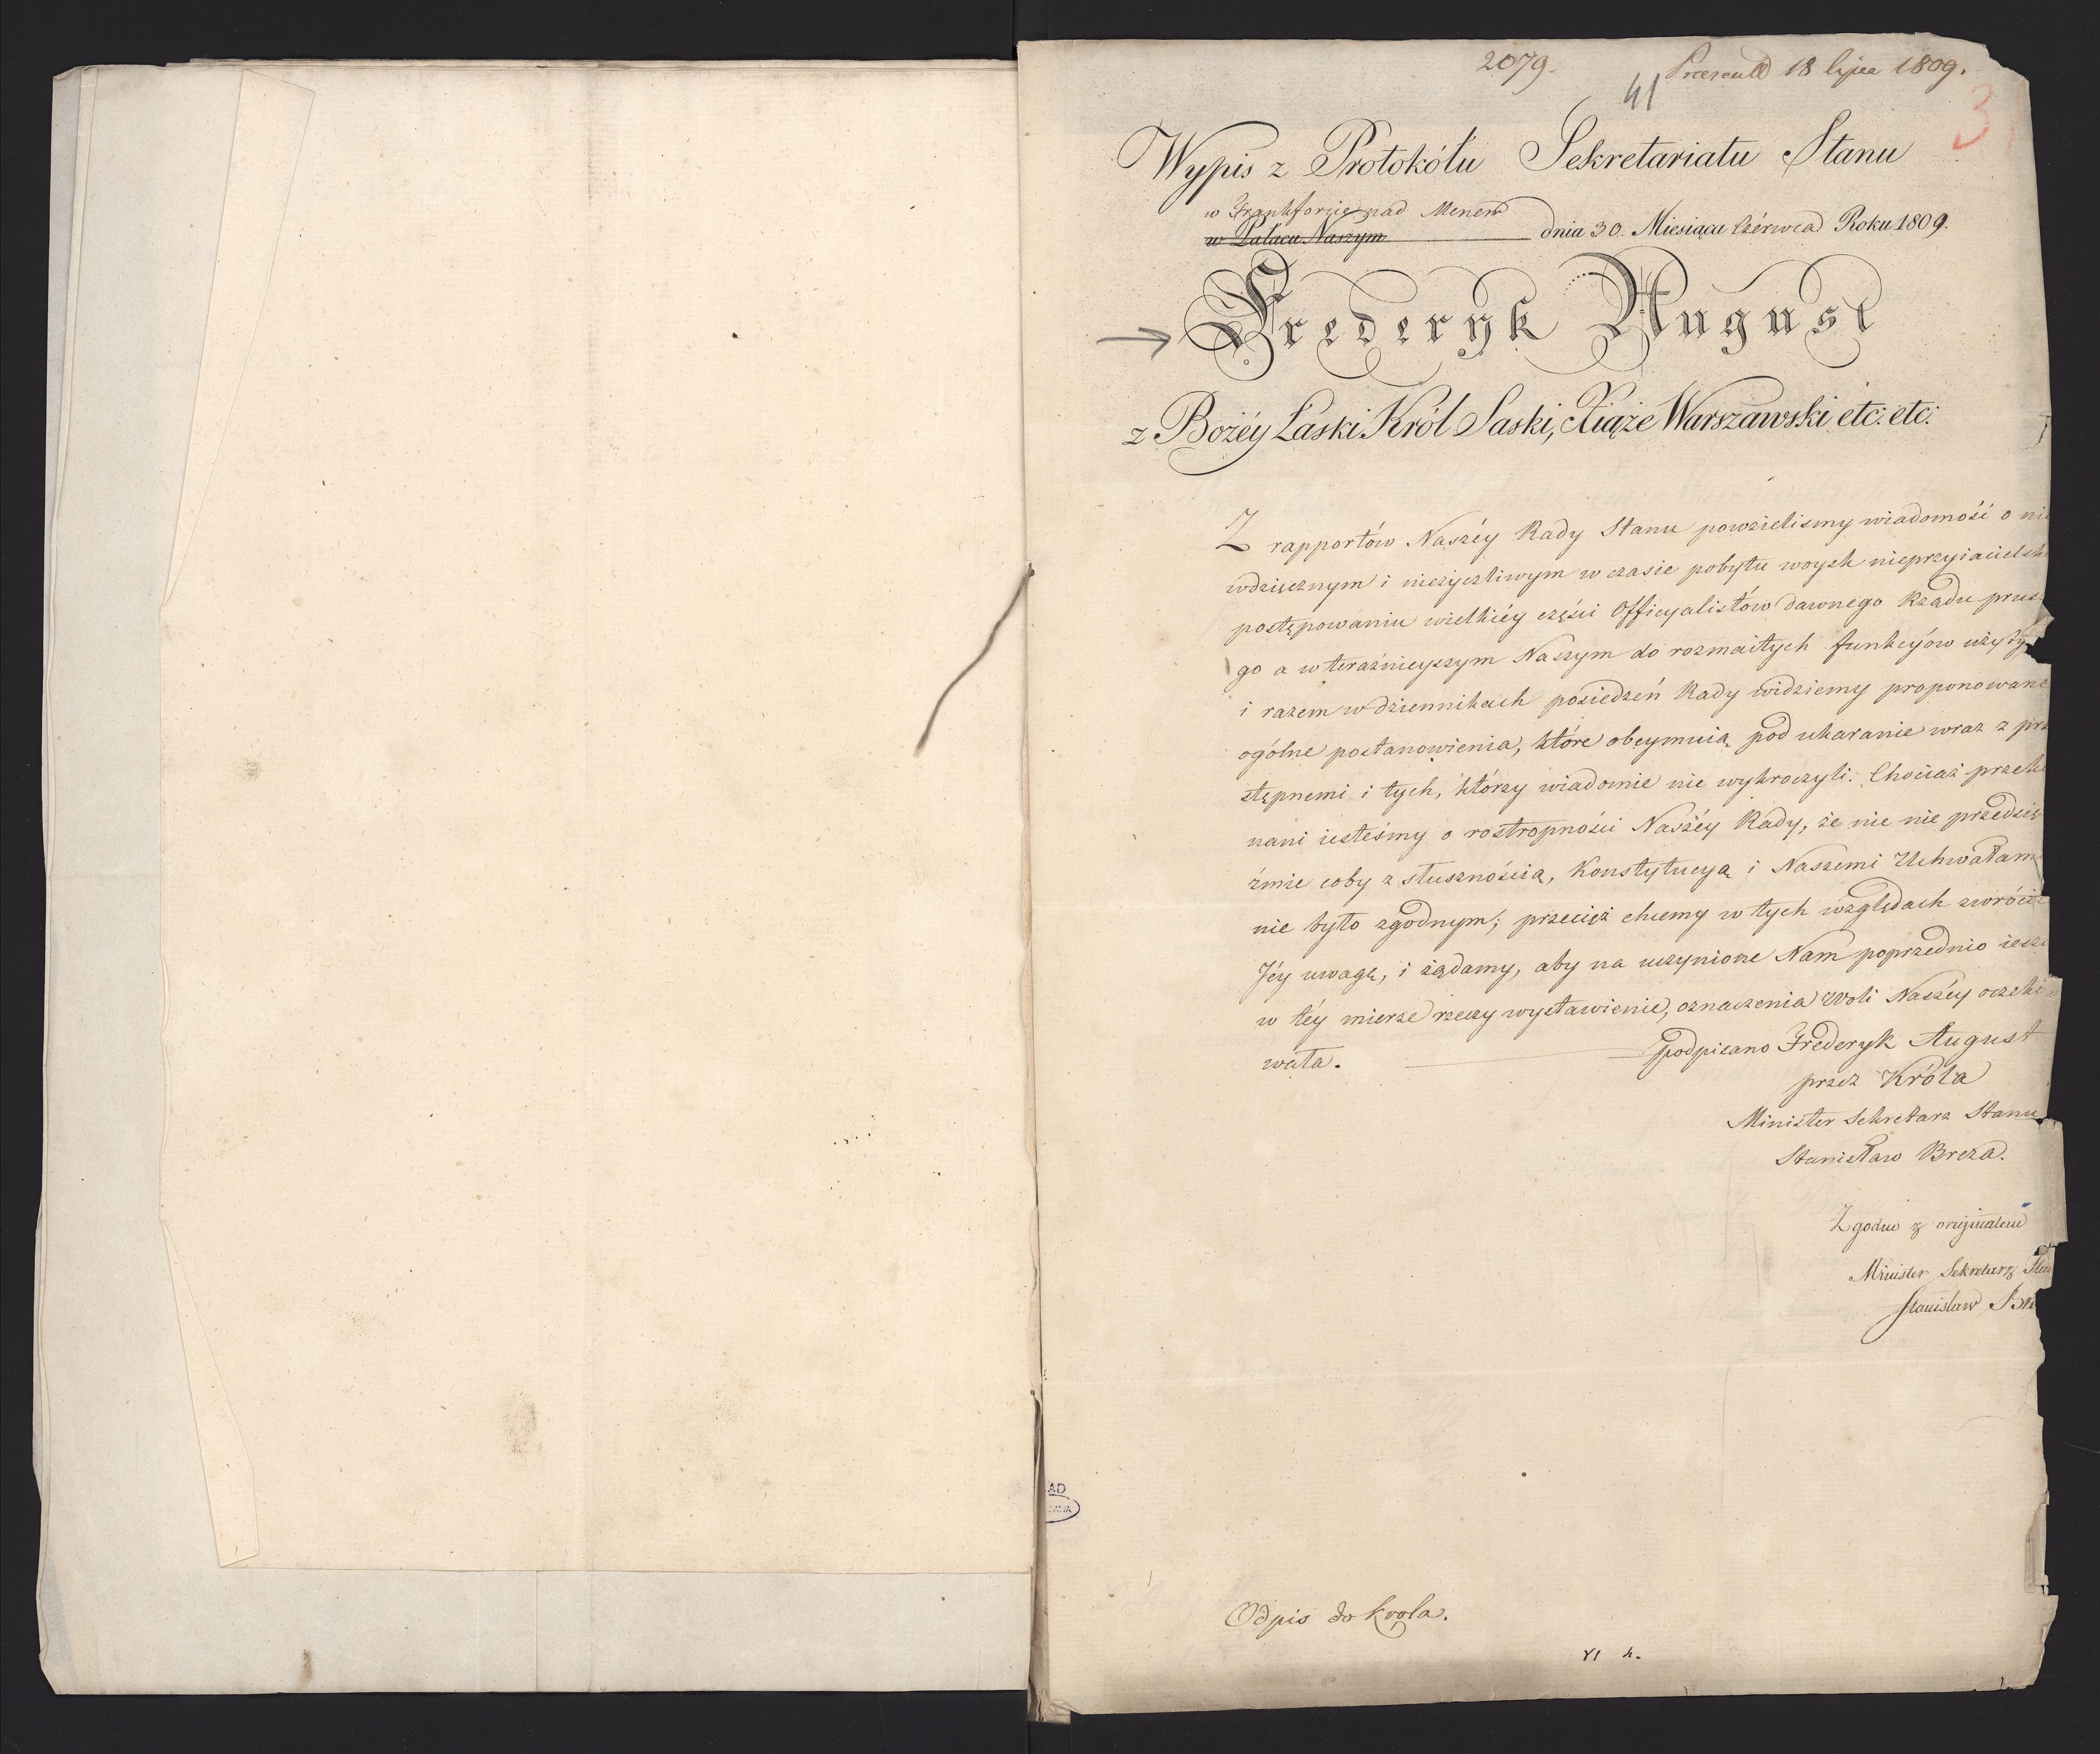 2079. Presentd 18 lipca 1809.
41
3
Wypis z Protokółu Sekretariatu Stanu
w Frankforcie nad Menem
w Pałacu Naszym dnia 30. Miesiąca Czérwca Roku 1809.
Frederyk August
z Bożéy Łaski Król Saski, Xiąże Warszawski etc: etc:
Z rapportów Naszéy Rady Stanu powzieliśmy wiadomość o nie
wdzięcznym i nieżyczliwym w czasie pobytu woysk nieprzyiacielski
postępowaniu wielkiéy części Officyalistów dawnego Rządu prus
go a w teraźnieyszym Naszym do rozmaitych funkcyów użyty
i razem w dziennikach posiedzeń Rady widziemy proponowane
ogólne postanowienia, które obeymuią pod ukaranie wraz z prz
stępnemi i tych, którzy wiadomie nie wykroczyli. Chociaż przeko
nani iesteśmy o rostropności Naszéy Rady, że nic nie przedsię
źmie coby z słusznością, Konstytucyą i Naszemi Uchwałam
nie było zgodnym; przecięż chcemy w tych względach zwrócić
Jéy uwagę, i żądamy, aby na uczynione Nam poprzednio ieszc
w téy mierze rzeczy wystawienie, oznaczenia Woli Naszéy oczeki
wała. podpisano Frederyk August
przez Króla
Minister Sekretarz Stanu
Stanisław Breza.
Zgodno z originałem
Minister Sekretarz Stan
Stanisław Bre
AD
Odpis do króla.
VI 4.